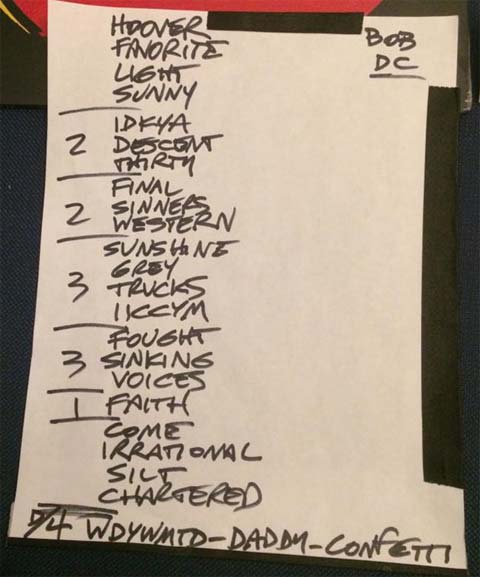 HOOVER
FAVORITE
LIGHT
SUNNY
BOB
DC
IDKYA
2 DESCENT
THIRTY
FINAL
2 SINNERS
WESTERN
SUNSHINE
GREY
3 TRUCKS
IICCYM
FOUGHT
3 SINKING
VOICES
1 FAITH
COME
IRRATIONAL
SILT
CHARTERED
D/4 WDYWMTD-DADDY-CONFETTI